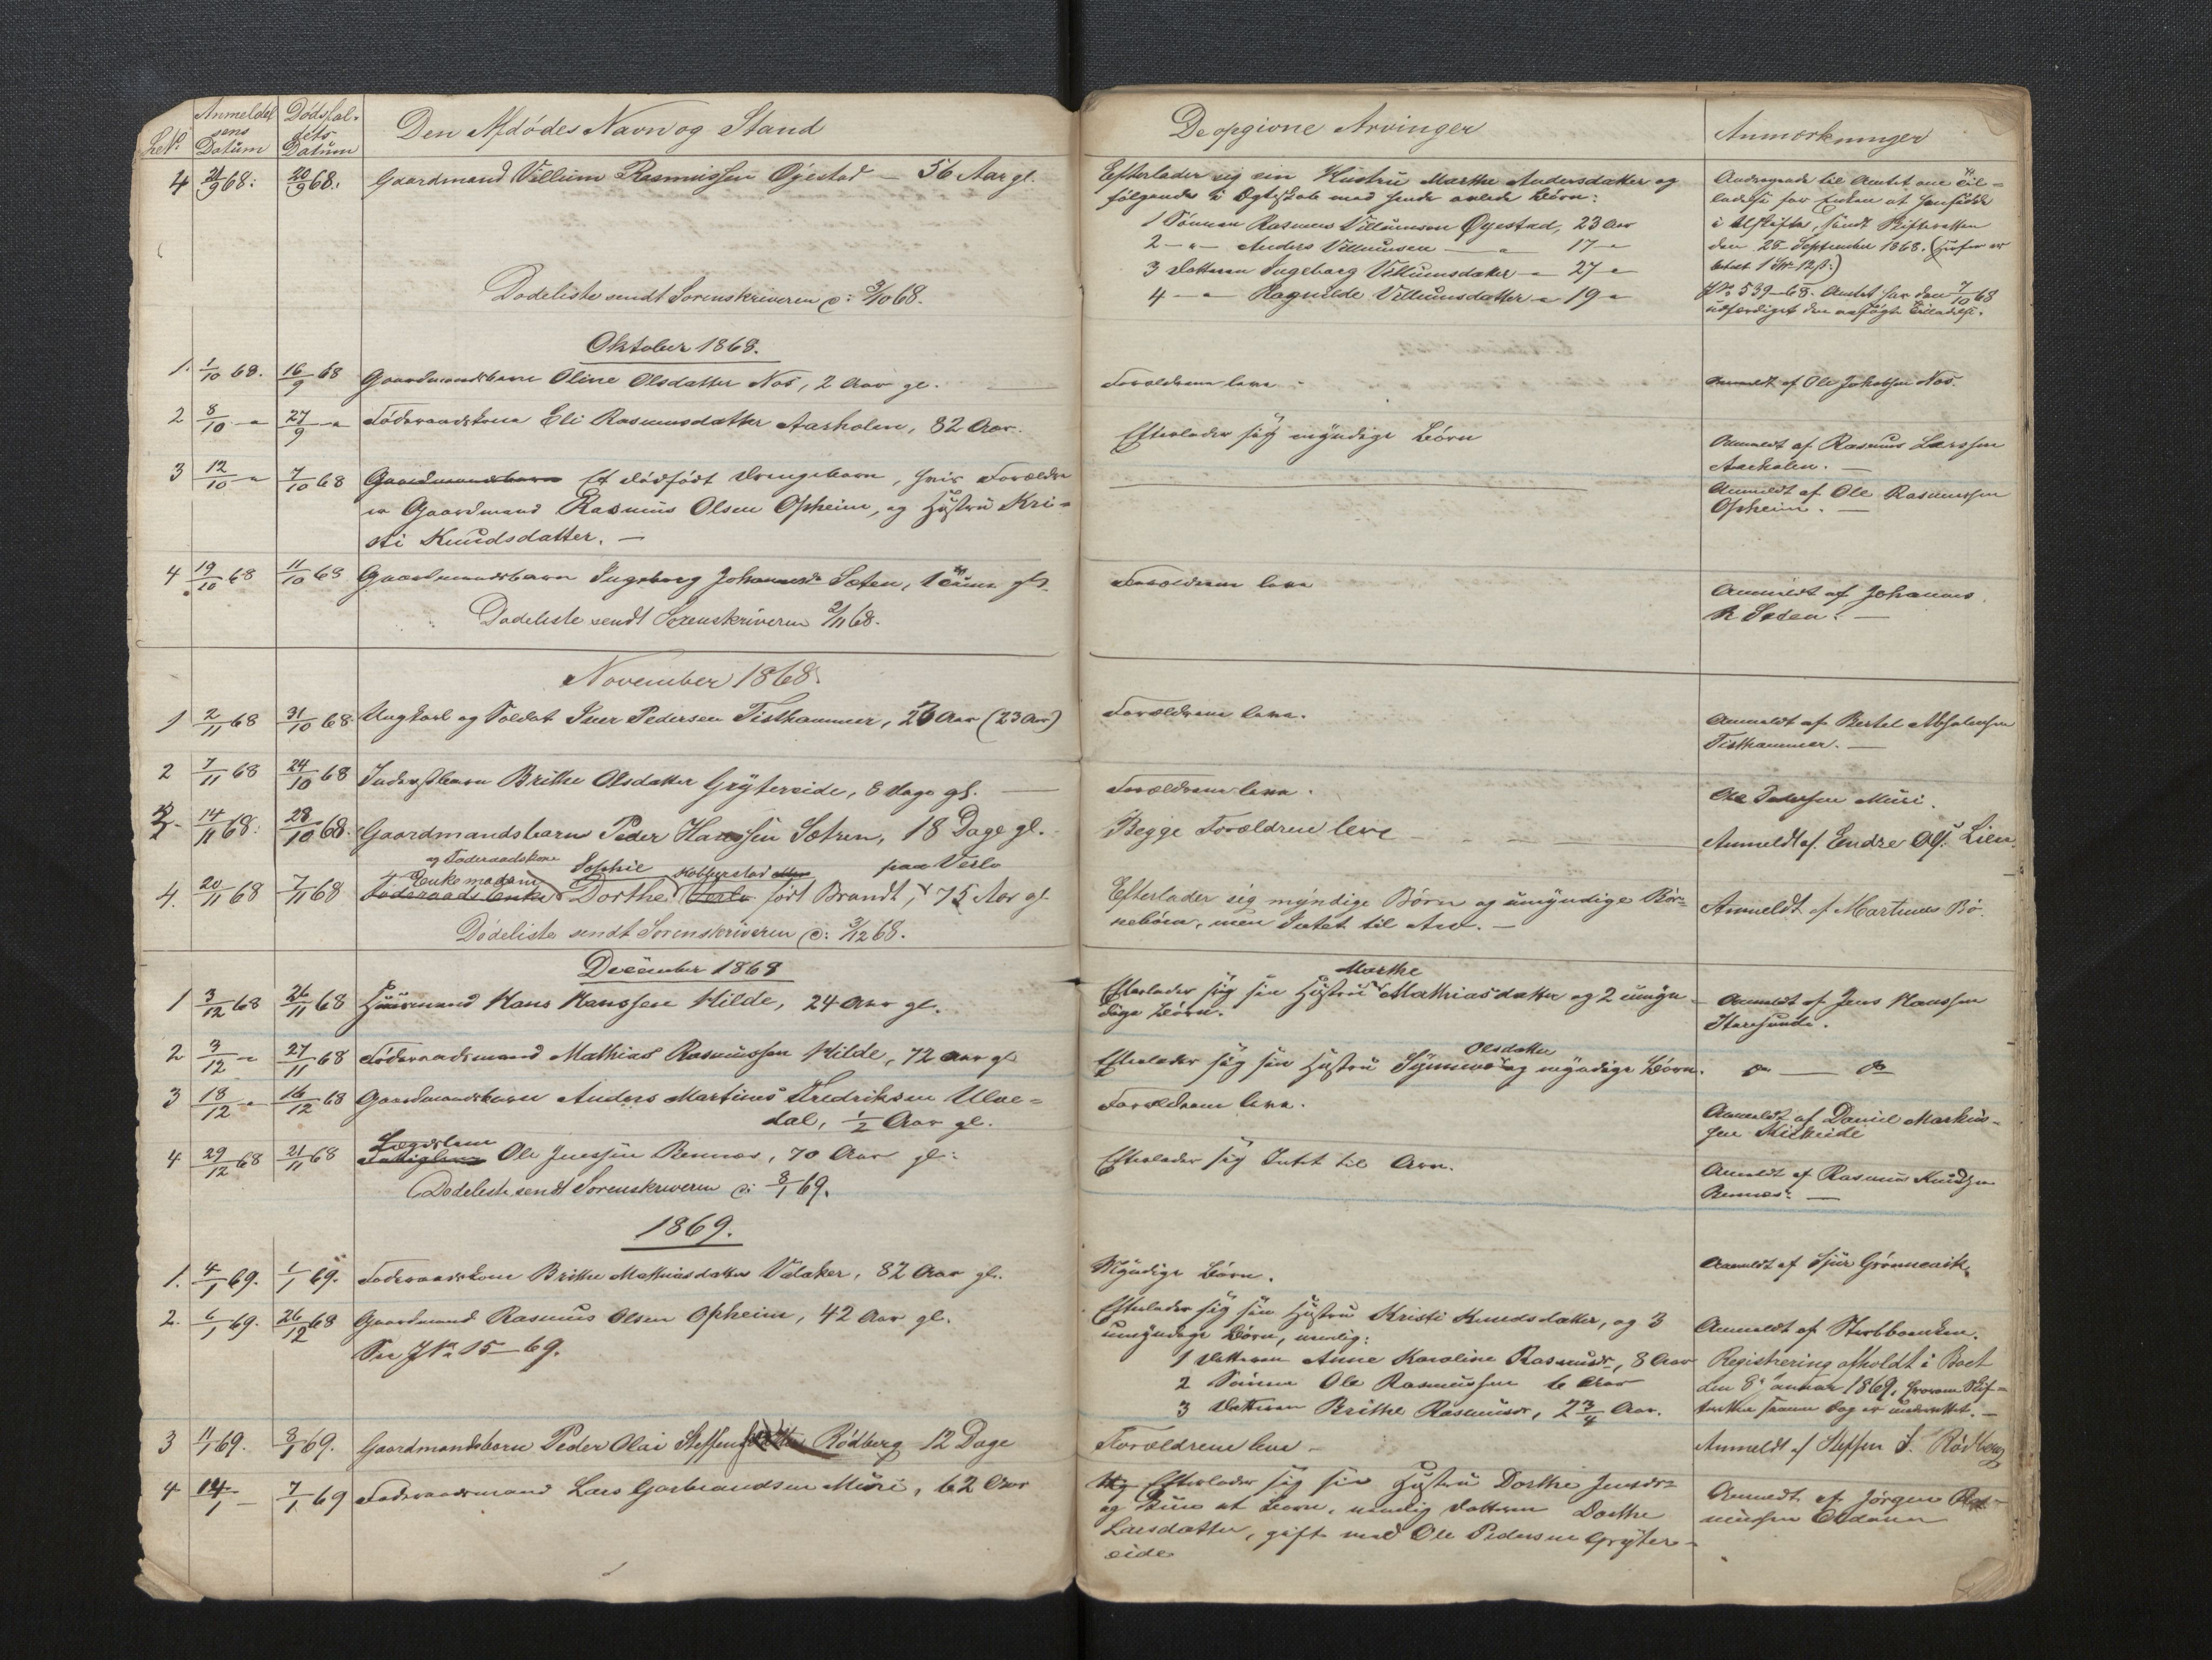 LeNo.
Anmeldel
sens
Datum
Dødsfal-
dets
Datum
Den Afdødes Navn og Stand
4 21/9 68: 20/9 68. Gaardmand Villum Rasmussen Øyestad — 56 Aar gl.
Dødeliste sendt Sorenskriveren d: 3/10 68.
Oktober 1868.
1. 1/10 68. 16/9 68 Gaardmandsbarn Oline Olsdatter Nos, 2 Aar gl.
2 8/10 - " 27/9 - " Føderaadskone Eli Rasmusdatter Aarholen, 82 Aar.
3 12/10 - " 7/10 68 Gaardmandsbarn Et dødfødt Drengebarn, hvis Forældre
er Gaardmand Rasmus Olsen Opheim, og Hustru Kri-
sti Knudsdatter. —
4 19/10 68 11/10 68 Gaardmandsbarn Ingeborg Johannesdr Sæten, 1 Time gl.
Dødeliste sendt Sorenskriveren 2/11 68.
November 1868.
1 2/11 68 31/10 68 Ungkarl og Soldat Iver Pedersen Tisthammer, 26 Aar (23 Aar)
2 7/11 68 24/10 68 Inderstbarn Brithe Olsdatter Grytereide, 8 Dage gl. —
3 14/11 68: 28/10 68: Gaardmandsbarn Peder Hanssen Sætren, 18 Dage gl.
og Føderaadskone
Enkemadam Sophie Kobberstad paa Verlo
4. 20/11 68 7/11 68 Føderaadsenke Dorthe Verlo født Brandt, 75 Aar gl
Dødeliste sendt Sorenskriveren d: 3/12 68.
December 1868
1 3/12 68 26/11 68 Huusmand Hans Hanssen Hilde, 24 Aar gl.
2 3/12 - " 27/11 68 Føderaadsmand Mathias Rasmussen Hilde, 72 Aar gl
3 18/12 - " 16/12 68 Gaardmandsbarn Anders Martinus Fredriksen Ulve-
dal, 1/2 Aar gl.
Lægdslem
4 29/12 68 21/11 68 Fattiglem Ole Jenssen Rennes, 70 Aar gl:
Dødeliste sendt Sorenskriveren d: 8/1 69.
1869.
1. 4/1 69. 1/1 69. Føderaadskone Brithe Mathiasdatter Vdaker, 82 Aar gl.
2. 6/1 69. 26/12 68 Gaardmand Rasmus Olsen Opheim, 42 Aar gl.
Se J No 15—69.
3 11/1 69. 8/1 69. Gaardmandsbarn Peder Olai Steffens Rødberg 12 Dage
4 14/1 — 7/1 69 Føderaadsmand Lars Gerbrandsen Muri, 62 Aar
De opgivne Arvinger
Efterlader sig sin Hustru Marthe Andersdatter og
følgende i Ægteskab med hende avlede Børn:
1 Sønnen Rasmus Villumsen Øyestad, 23 Aar
2 - " - Anders Villumsen — " 17 - "
3 Datteren Ingeborg Villumsdatter - " 27 - "
4 - " Ragnilde Villumsdatter - " 19 - "
Forældrene leve -
Efterlader sig myndige Børn
Forældrene leve
Forældrene leve.
Forældrene leve.
Begge Forældrene leve
Efterlader sig myndige Børn og umyndige Bør-
nebørn, men Intet til Arv. —
Marthe
Efterlader sig sin Hustru Mathiasdatter og 2 umyn-
dige Børn.
Olsdatter
Efterlader sig sin Hustru Synneve og myndige Børn.
Forældrene leve.
Efterlader sig Intet til Arv.
Myndige Børn.
Efterlader sig sin Hustru Kristi Knudsdatter, og 3
umyndige Børn, nemlig:
1 Datteren Anne Karoline Rasmusdr, 8 Aar
2 Sønnen Ole Rasmussen 6 Aar
3 Datteren Brithe Rasmusdr, 2 3/4 Aar.
Forældrene leve -
Efterlader sig sin Hustru Dorthe Jensdr
og Kuns et Barn, nemlig Datteren Dorthe
Larsdatter, gift med Ole Pedersen Gryter-
eide
Anmærkninger
Andragende til Amtet om Til-
ladelse for Enken at hensidde
i uskiftet, sendt Skifteretten
den 25 September 1868. (herfor er
betalt 1 Ort 12 s:)
JNo 539—68. Amtet har den 7/10 68
udfærdiget den ansøgte Tilladelse.
Anmeldt af Ole Jakobsen Nos.
Anmeldt af Rasmus Larssen
Aarholen. —
Anmeldt af Ole Rasmussen
Opheim. —
Anmeldt af Johannes
R Sæten. —
Anmeldt af Bertel Absalonsen
Tisthammer. —
Ole Pedersen Muri.
Anmeldt af Endre Ols. Lien.
Anmeldt af Martinus Bø.
Anmeldt af Jens Hanssen
Staresunde.
Do — Do
Anmeldt af Daniel Markus-
sen
Anmeldt af Rasmus Knudsen
Rennes. —
Anmeldt af Sjur Grønneaeik.
Anmeldt af Sterbboenken.
Registrering afholdt i Boet
den 8de Januar 1869, hvorom Skif-
teretten samme Dag er underrettet. —
Anmeldt af Steffen S. Rødberg
Anmeldt af Jørgen Ras-
mussen